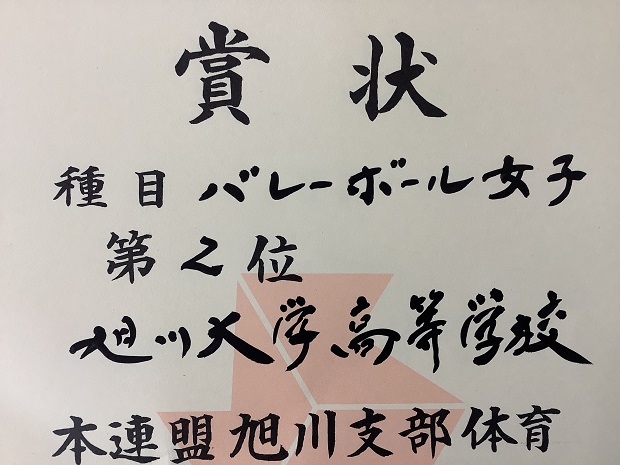 賞状
種目 バレーボール女子
第2位
旭川大学高等学校
本連盟旭川支部体育